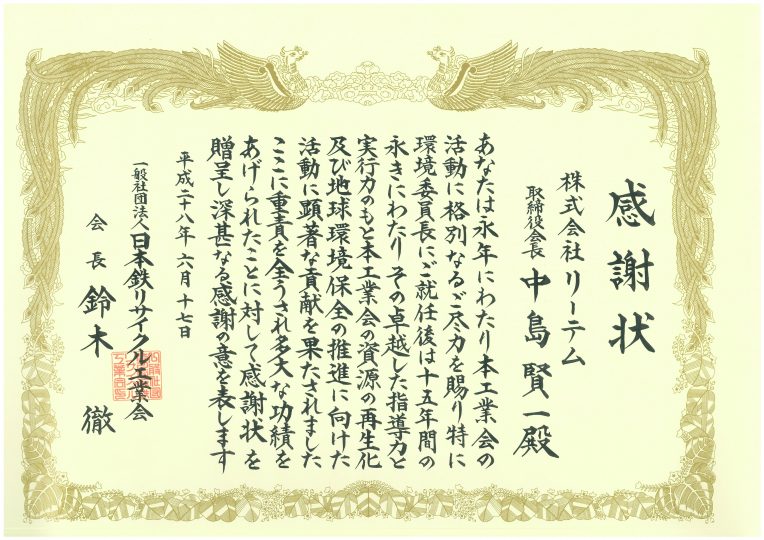 感謝状
株式会社 リーテム
取締役会長 中島賢一殿
あなたは永年にわたり本工業会の
活動に格別なるご尽力を賜り特に
環境委員長にご就任後は十五年間の
永きにわたり その卓越した指導力と
実行力のもと本工業会の資源の再生化
及び地球環境保全の推進に向けた
活動に顕著な貢献を果たされました
ここに重責を全うされ多大な功績を
あげられたことに対して感謝状を
贈呈し深甚なる感謝の意を表します
平成二十八年 六月 十七日
一般社団法人 日本鉄リサイクル工業会
会長 鈴木 徹